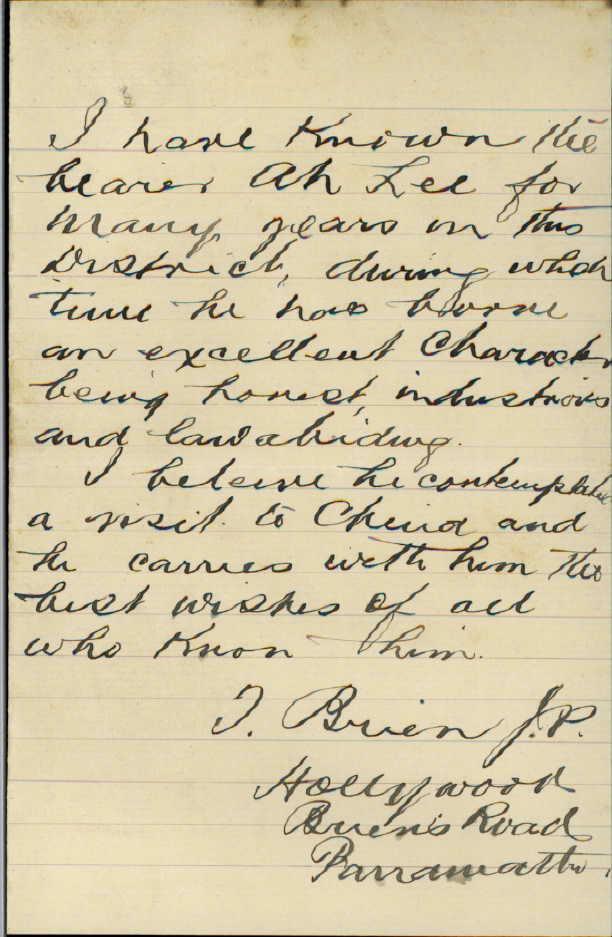 I have known the
bearer Ah Lee for
many years in this
District, during which
time he has borne
an excellent Character
being honest, industrious
and law abiding.
I beleive he contemplates
a visit to China and
he carries with him the
best wishes of all
who know him.
T. Brien J.P.
Hollywood
Brien's Road
Parramatta.